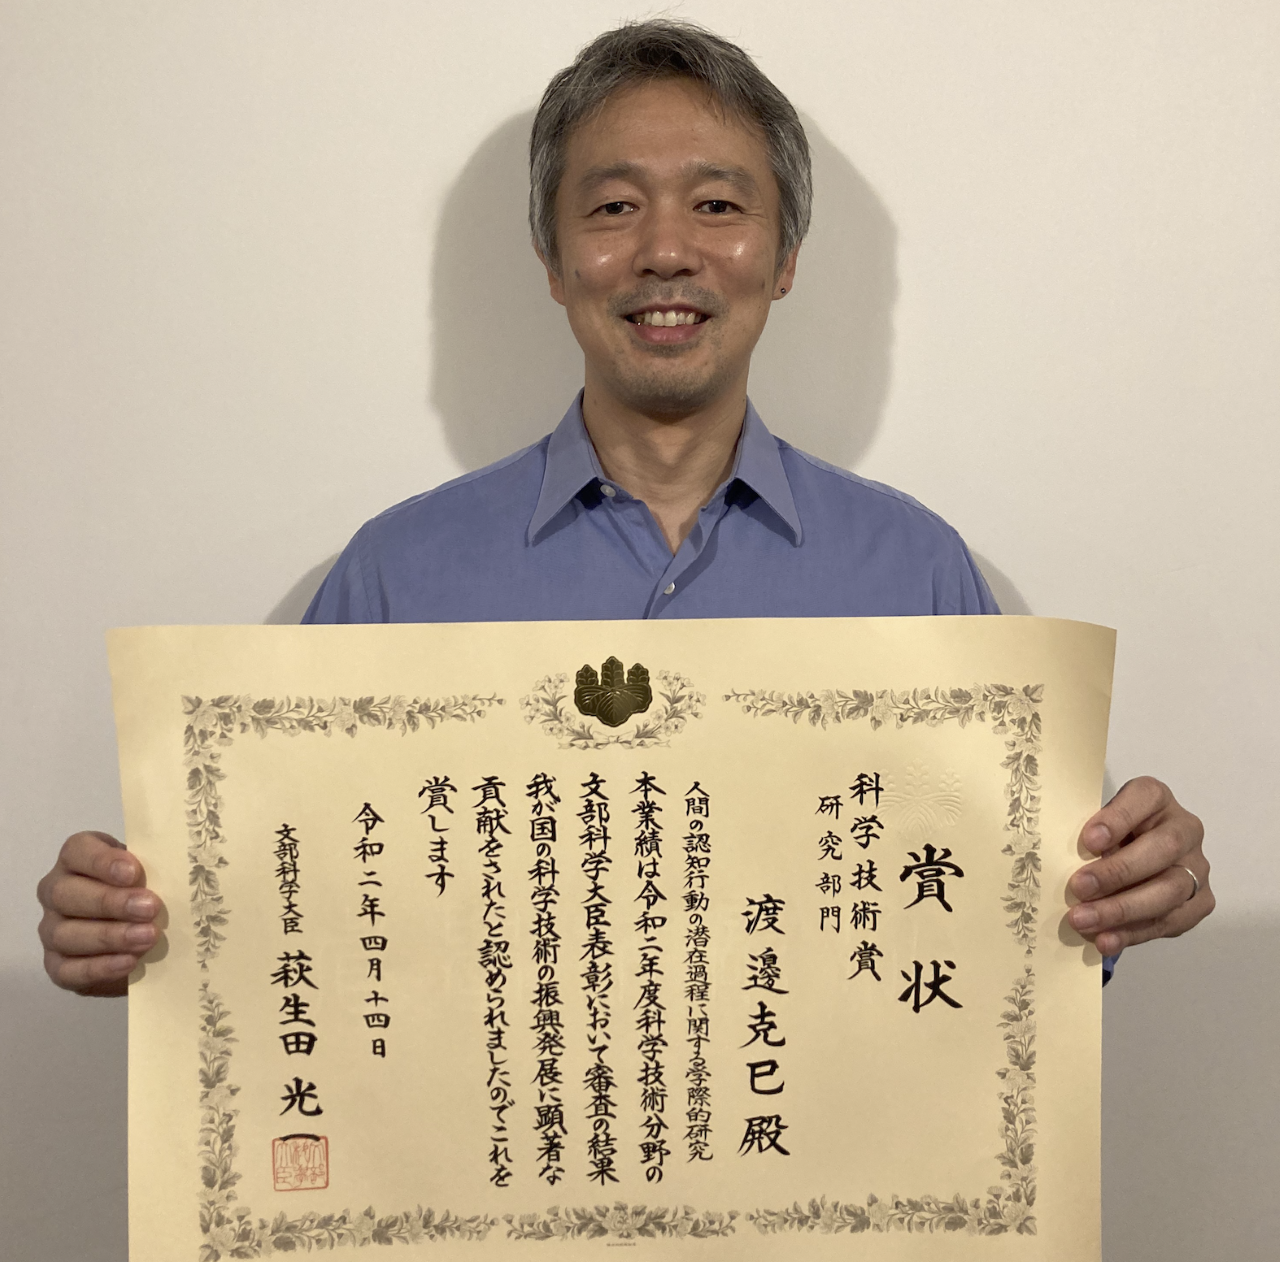 賞状
科学技術賞
研究部門
渡邊克巳殿
人間の認知行動の潜在過程に関する学際的研究
本業績は令和二年度科学技術分野の
文部科学大臣表彰において審査の結果
我が国の科学技術の振興発展に顕著な
貢献をされたと認められましたのでこれを
賞します
令和二年四月十四日
文部科学大臣 萩生田光一